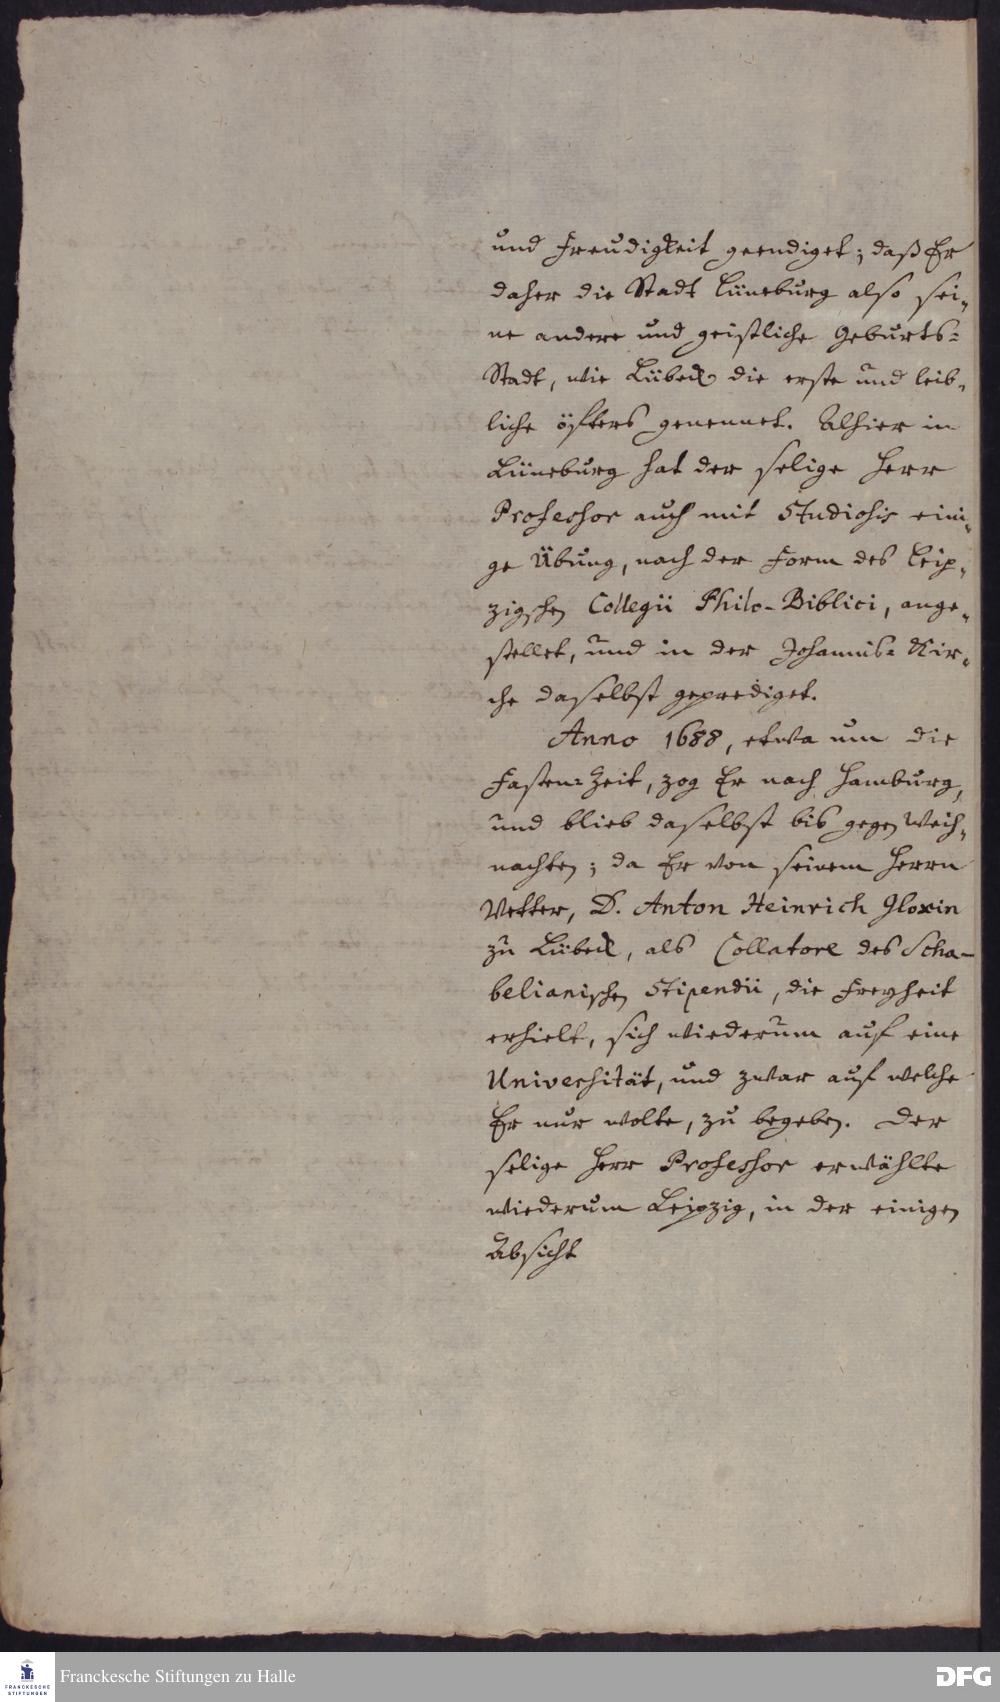 und Freudigkeit geendiget; daß Er
daher die Stadt Lüneburg also sei-
ne andere und geistliche Geburts-
Stadt, wie Lübeck die erste und leib-
liche öffters genennet. Alhier in
Lüneburg hat der selige Herr
Professor auch mit Studiosis eini-
ge Übung, nach der Form des Leip-
zigschen Collegii Philo-Biblici, ange-
stellet, und in der Johannis-Kir-
che daselbst geprediget.
Anno 1688, etwa um die
Fasten-Zeit, zog Er nach Hamburg,
und blieb daselbst bis gegen Weih-
nachten; da Er von seinem Herrn
Vetter, D. Anton Heinrich Gloxin
zu Lübeck, als Collatore des Scha-
belianischen Stipendii, die Freyheit
erhielt, sich wiederum auf eine
Universität, und zwar auf welche
Er nur wolte, zu begeben. Der
selige Herr Professor erwählte
wiederum Leipzig, in der einigen
Absicht
FRANCKESCHE
STIFTUNGEN
Franckesche Stiftungen zu Halle
DFG